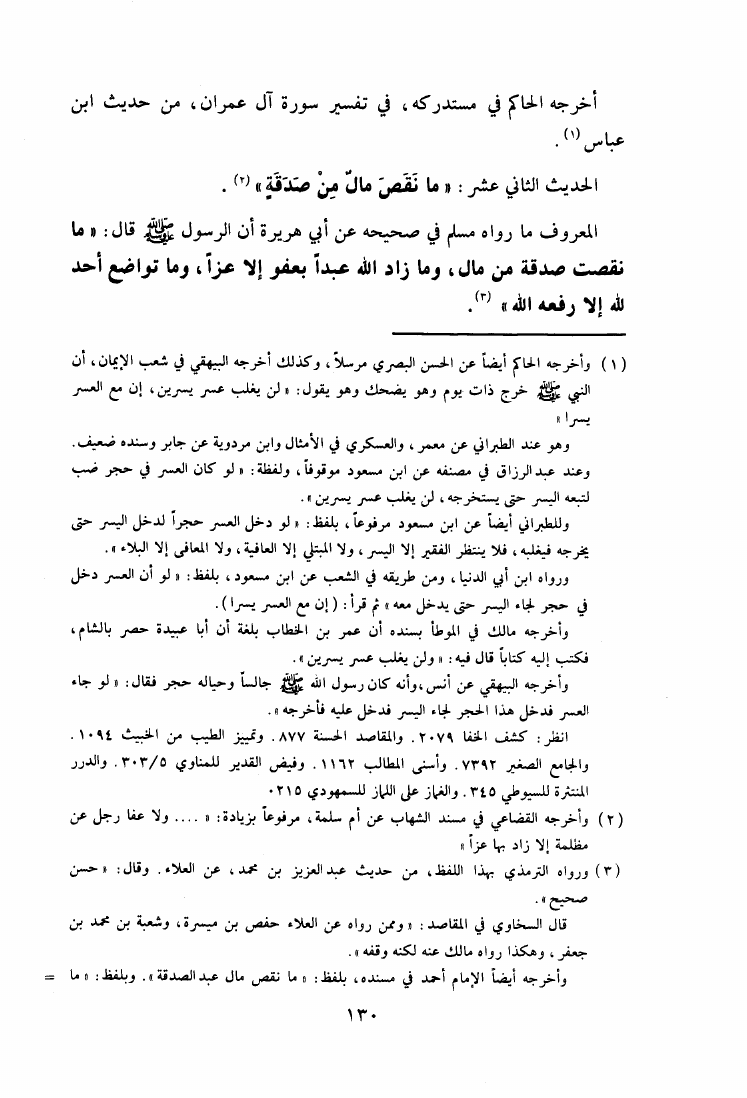 أخرجه الحاكم في مستدركه، في تفسير سورة آل عمران، من حديث ابن
عباس (١).
الحديث الثاني عشر: « ما نَقَصَ مالٌ مِنْ صَدَقَةٍ » (٢).
المعروف ما رواه مسلم في صحيحه عن أبي هريرة أن الرسول ﷺ قال: « ما
نقصت صدقة من مال، وما زاد الله عبداً بعفو إلا عزاً، وما تواضع أحد
لله إلا رفعه الله » (٣).
(١) وأخرجه الحاكم أيضاً عن الحسن البصري مرسلاً، وكذلك أخرجه البيهقي في شعب الإيمان، أن
النبي ﷺ خرج ذات يوم وهو يضحك وهو يقول: « لن يغلب عسر يسرين، إن مع العسر
يسرا »
وهو عند الطبراني عن معمر، والعسكري في الأمثال وابن مردوية عن جابر وسنده ضعيف.
وعند عبدالرزاق في مصنفه عن ابن مسعود موقوفاً، ولفظة: « لو كان العسر في حجر ضب
لتبعه اليسر حتى يستخرجه، لن يغلب عسر يسرين ».
وللطبراني أيضاً عن ابن مسعود مرفوعاً، بلفظ: « لو دخل العسر حجراً لدخل اليسر حتى
يخرجه فيغلبه، فلا ينتظر الفقير إلا اليسر، ولا المبتلي إلا العافية، ولا المعافى إلا البلاء ».
ورواه ابن أبي الدنيا، ومن طريقه في الشعب عن ابن مسعود، بلفظ: « لو أن العسر دخل
في حجر لجاء اليسر حتى يدخل معه » ثم قرأ: (إن مع العسر يسرا).
وأخرجه مالك في الموطأ بسنده أن عمر بن الخطاب بلغة أن أبا عبيدة حصر بالشام،
فكتب إليه كتاباً قال فيه: « ولن يغلب عسر يسرين ».
وأخرجه البيهقي عن أنس، وأنه كان رسول الله ﷺ جالساً وحياله حجر فقال: « لو جاء
العسر فدخل هذا الحجر لجاء اليسر فدخل عليه فأخرجه ».
انظر: كشف الخفا ٢٠٧٩. والمقاصد الحسنة ٨٧٧. وتمييز الطيب من الخبيث ١٠٩٤.
والجامع الصغير ٧٣٩٢. وأسنى المطالب ١١٦٢. وفيض القدير للمناوي ٣٠٣/٥. والدرر
المنتثرة للسيوطي ٣٤٥. والغماز على اللماز للسمهودي ٢١٥٠
(٢) وأخرجه القضاعي في مسند الشهاب عن أم سلمة، مرفوعاً بزيادة: « .... ولا عفا رجل عن
مظلمة إلا زاد بها عزاً »
(٣) ورواه الترمذي بهذا اللفظ، من حديث عبدالعزيز بن محمد، عن العلاء. وقال: « حسن
صحيح ».
قال السخاوي في المقاصد: « وممن رواه عن العلاء حفص بن ميسرة، وشعبة بن محمد بن
جعفر، وهكذا رواه مالك عنه لكنه وقفه ».
وأخرجه أيضاً الإمام أحمد في مسنده، بلفظ: « ما نقص مال عبدالصدقة ». وبلفظ: « ما =
١٣٠